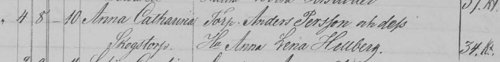 4 8 - 10 Anna Catharina Torp. Anders Persson och dess
Skogstorp. Hu Anna Lena Hellberg. 34